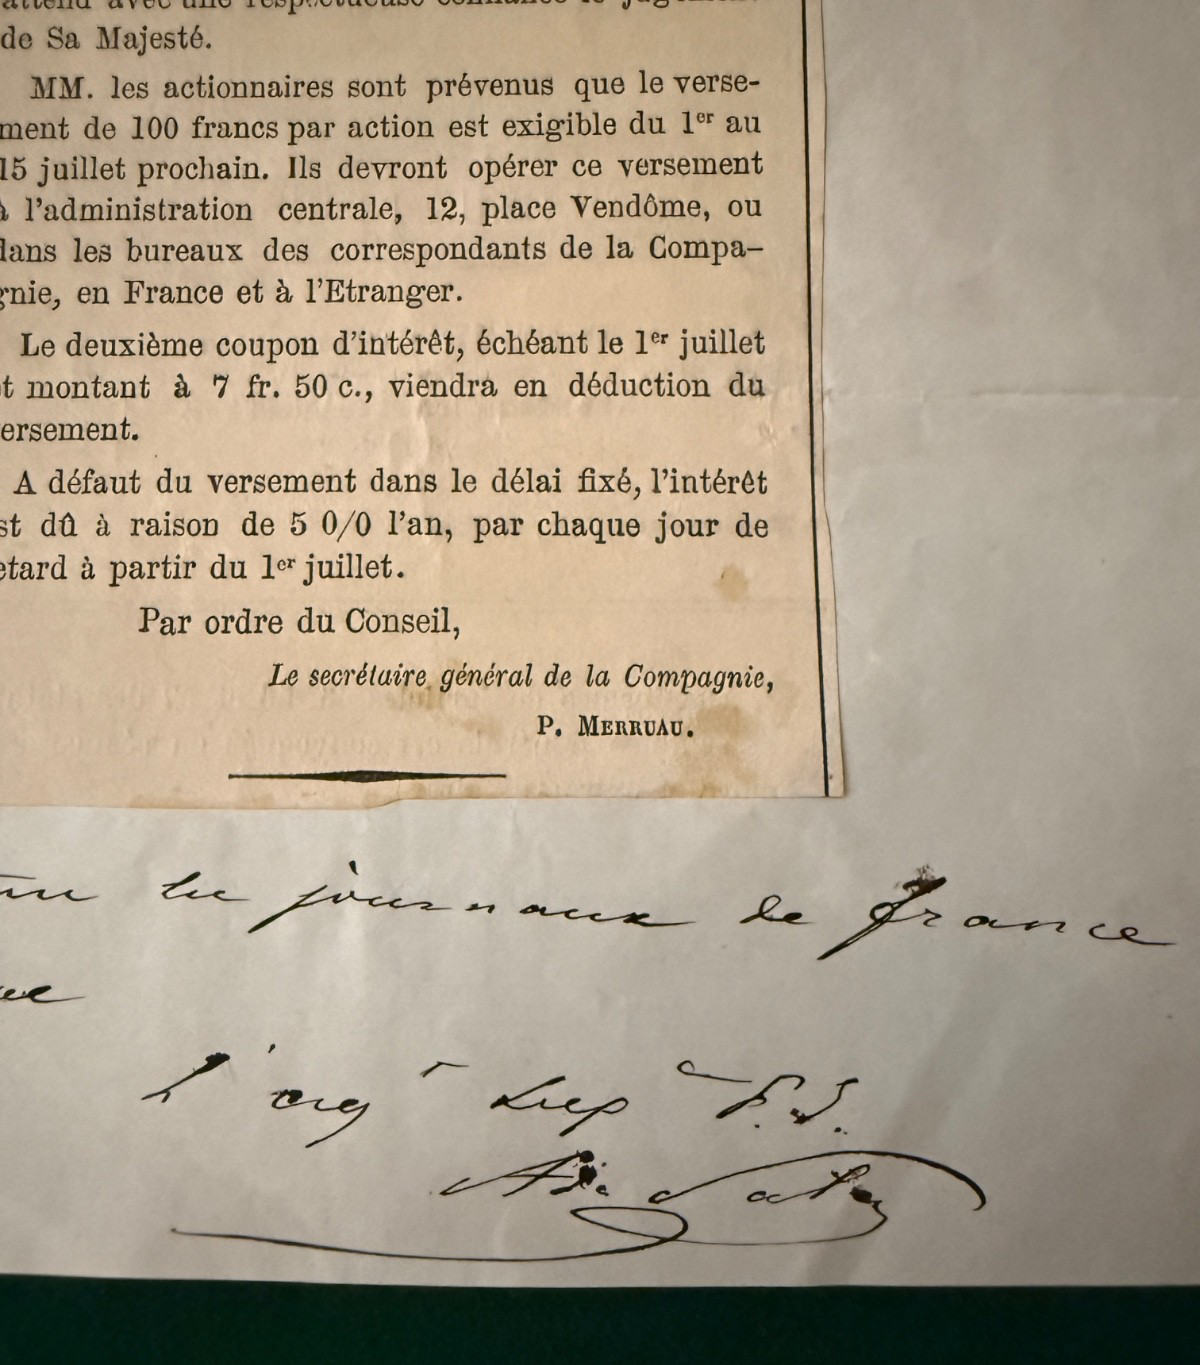 attend avec une respectueuse confiance le jugement
de Sa Majesté.
MM. les actionnaires sont prévenus que le verse-
ment de 100 francs par action est exigible du 1er au
15 juillet prochain. Ils devront opérer ce versement
à l'administration centrale, 12, place Vendôme, ou
dans les bureaux des correspondants de la Compa-
gnie, en France et à l'Etranger.
Le deuxième coupon d'intérêt, échéant le 1er juillet
t montant à 7 fr. 50 c., viendra en déduction du
ersement.
A défaut du versement dans le délai fixé, l'intérêt
st dû à raison de 5 0/0 l'an, par chaque jour de
etard à partir du 1er juillet.
Par ordre du Conseil,
Le secrétaire général de la Compagnie,
P. MERRUAU.
journaux de france